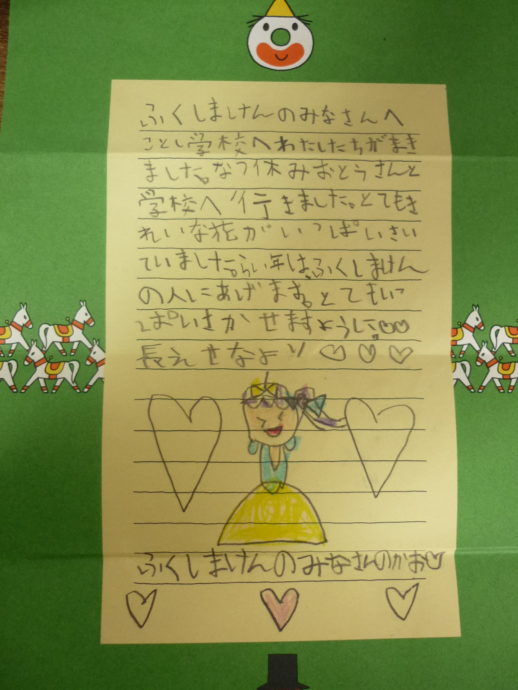 ふくしまけんのみなさんへ
ことし学校へわたしたちがまき
ました。なつ休みおとうさんと
学校へ行きました。とてもき
れいな花がいっぱいさい
ていました。らい年は、ふくしまけん
の人にあげます。とてもいっ
ぱいさかせますように。
長え せなより
ふくしまけんのみなさんのかお